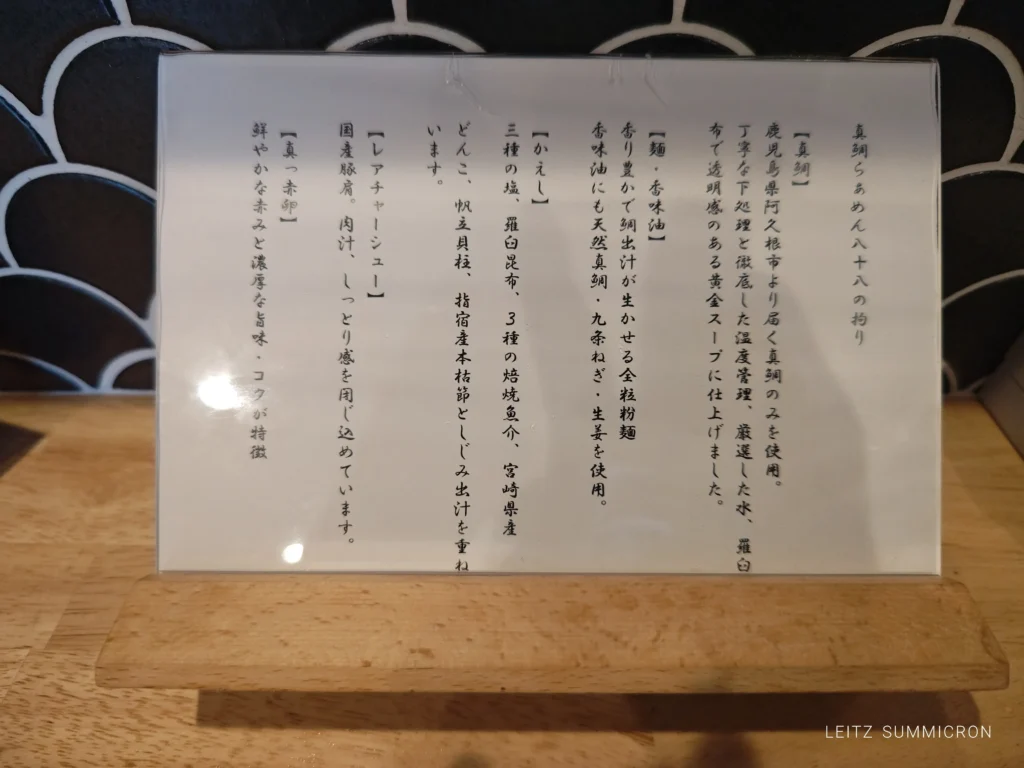 真鯛らぁめん八十八の拘り
【真鯛】
鹿児島県阿久根市より届く真鯛のみを使用。
丁寧な下処理と徹底した温度管理、厳選した水、羅臼
布で透明感のある黄金スープに仕上げました。
【麺・香味油】
香り豊かで鯛出汁が生かせる全粒粉麺
香味油にも天然真鯛・九条ねぎ・生姜を使用。
【かえし】
三種の塩、羅臼昆布、3種の焙焼魚介、宮崎県産
どんこ、帆立貝柱、指宿産本枯節としじみ出汁を重ね
います。
【レアチャーシュー】
国産豚肩。肉汁、しっとり感を閉じ込めています。
【真っ赤卵】
鮮やかな赤みと濃厚な旨味・コクが特徴
LEITZ SUMMICRON